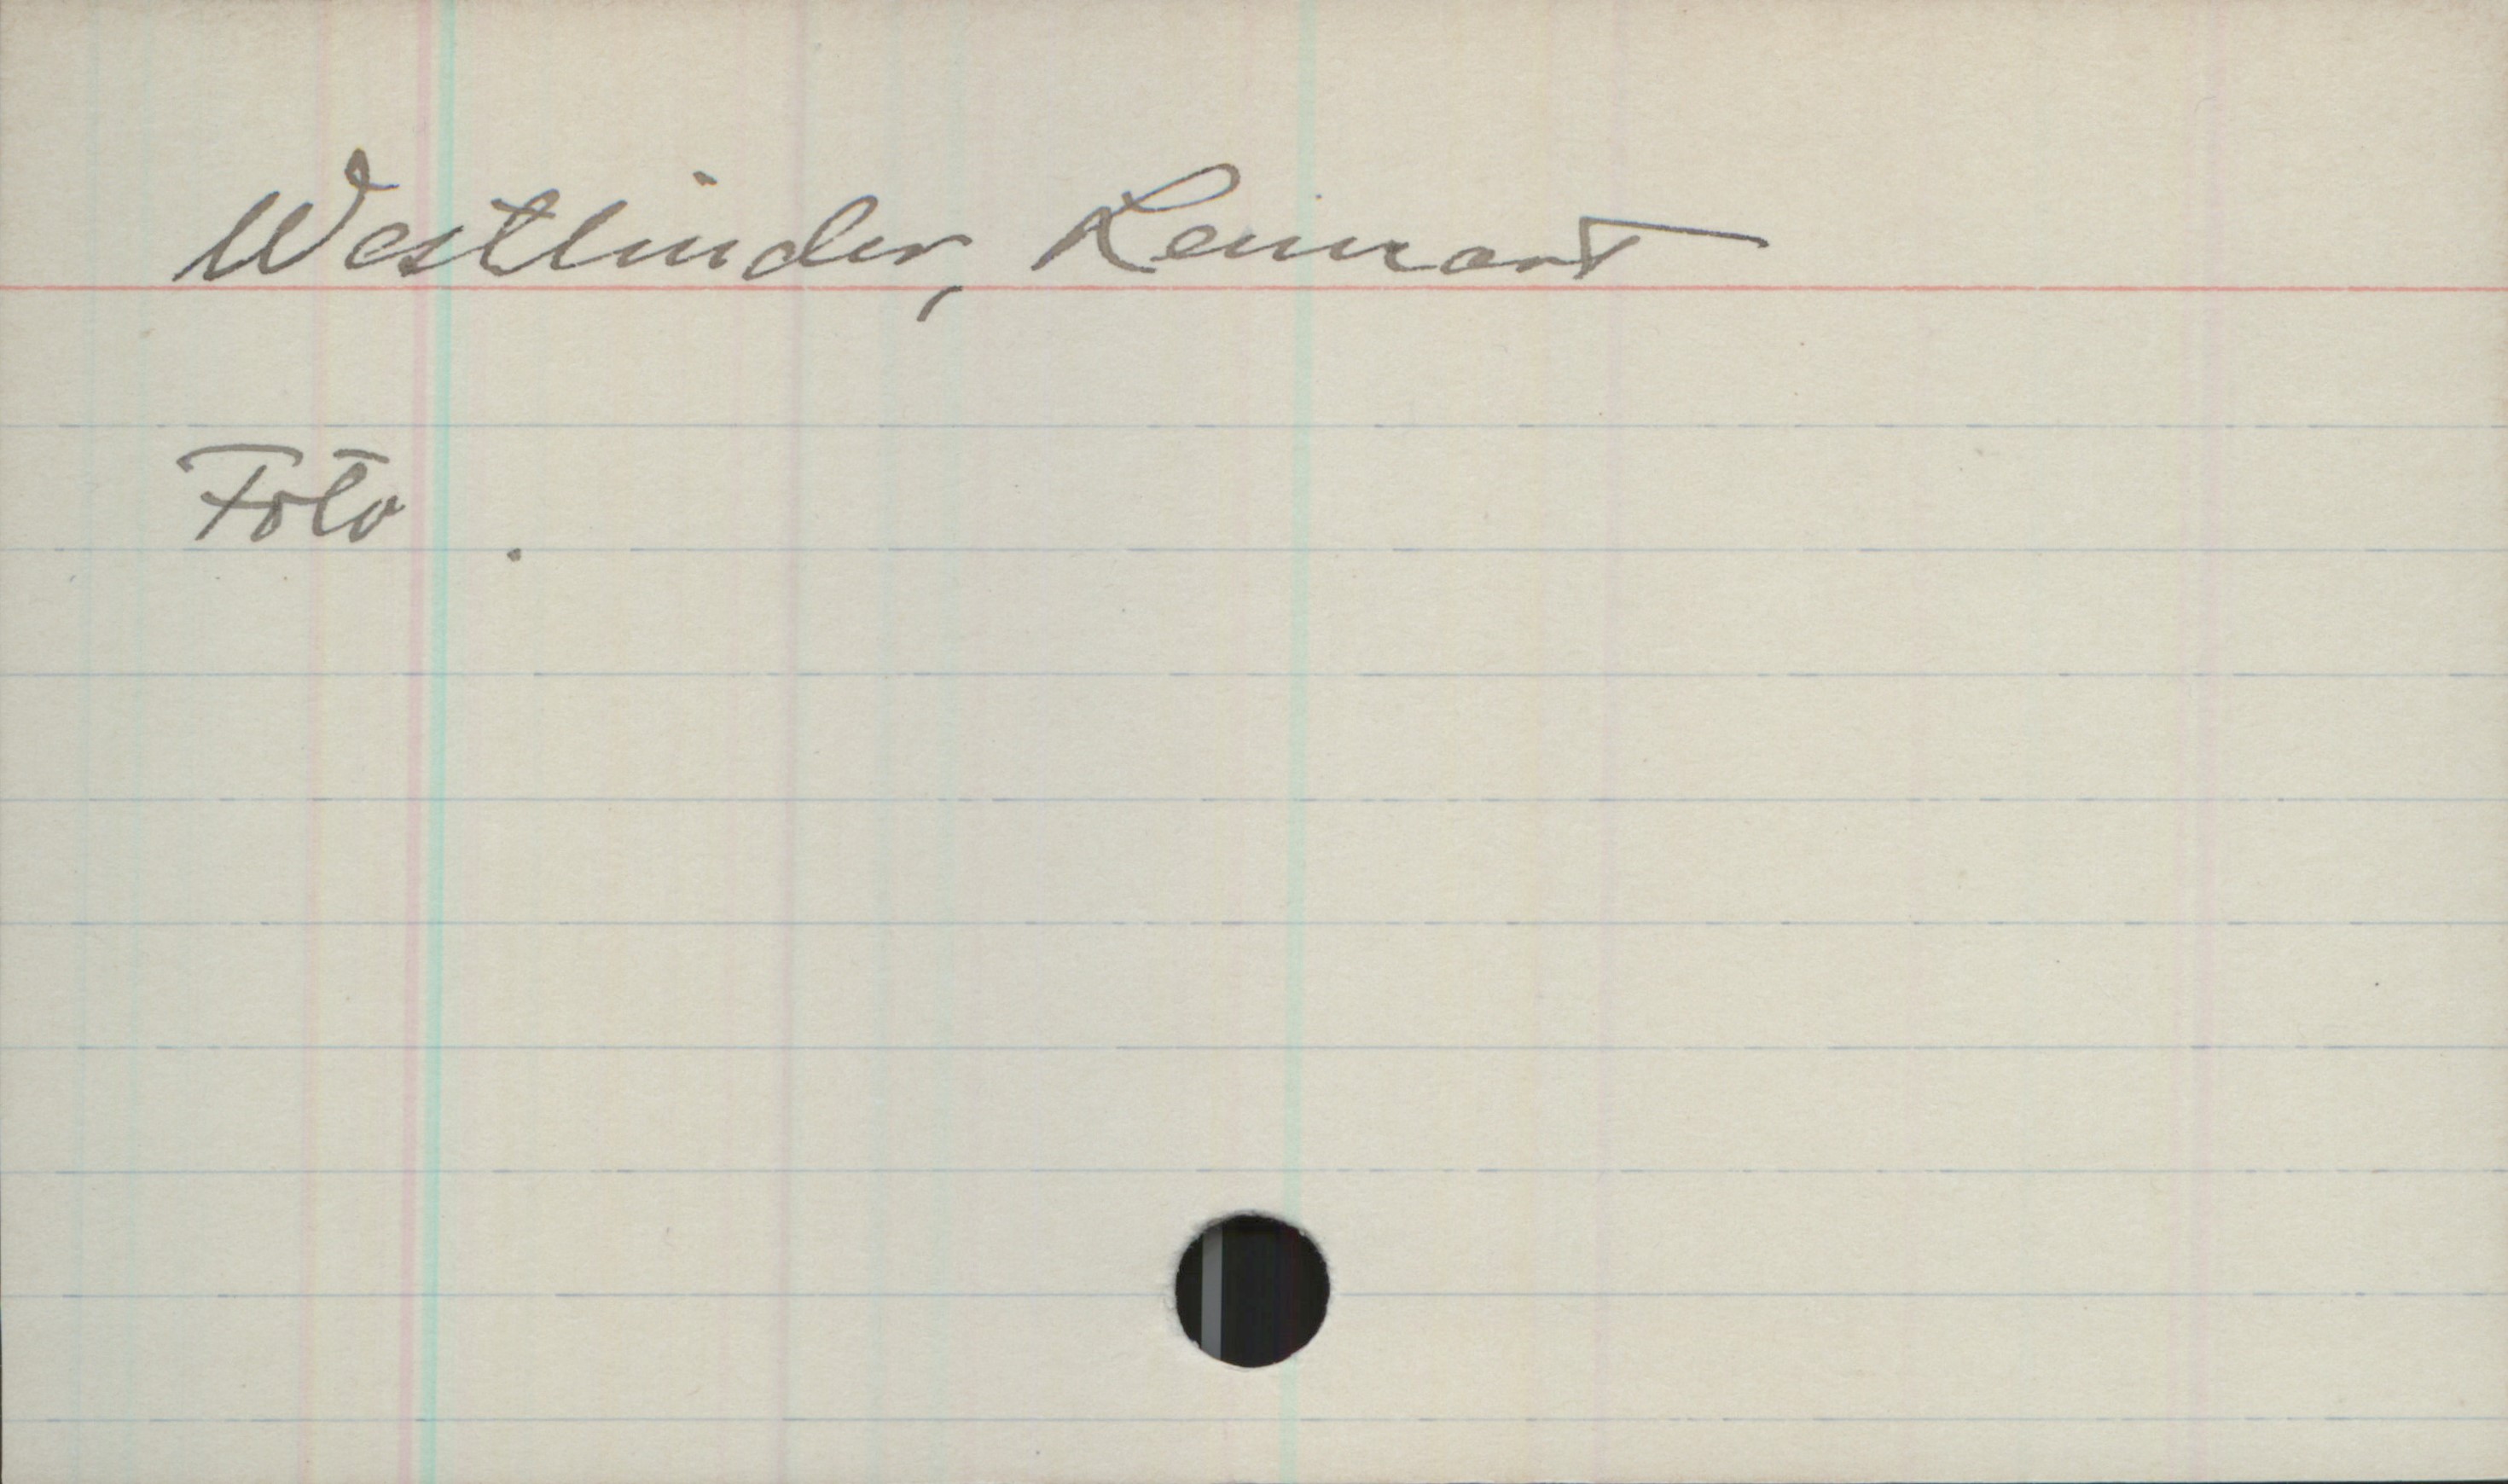 Westlinder, Lennart
Foto.